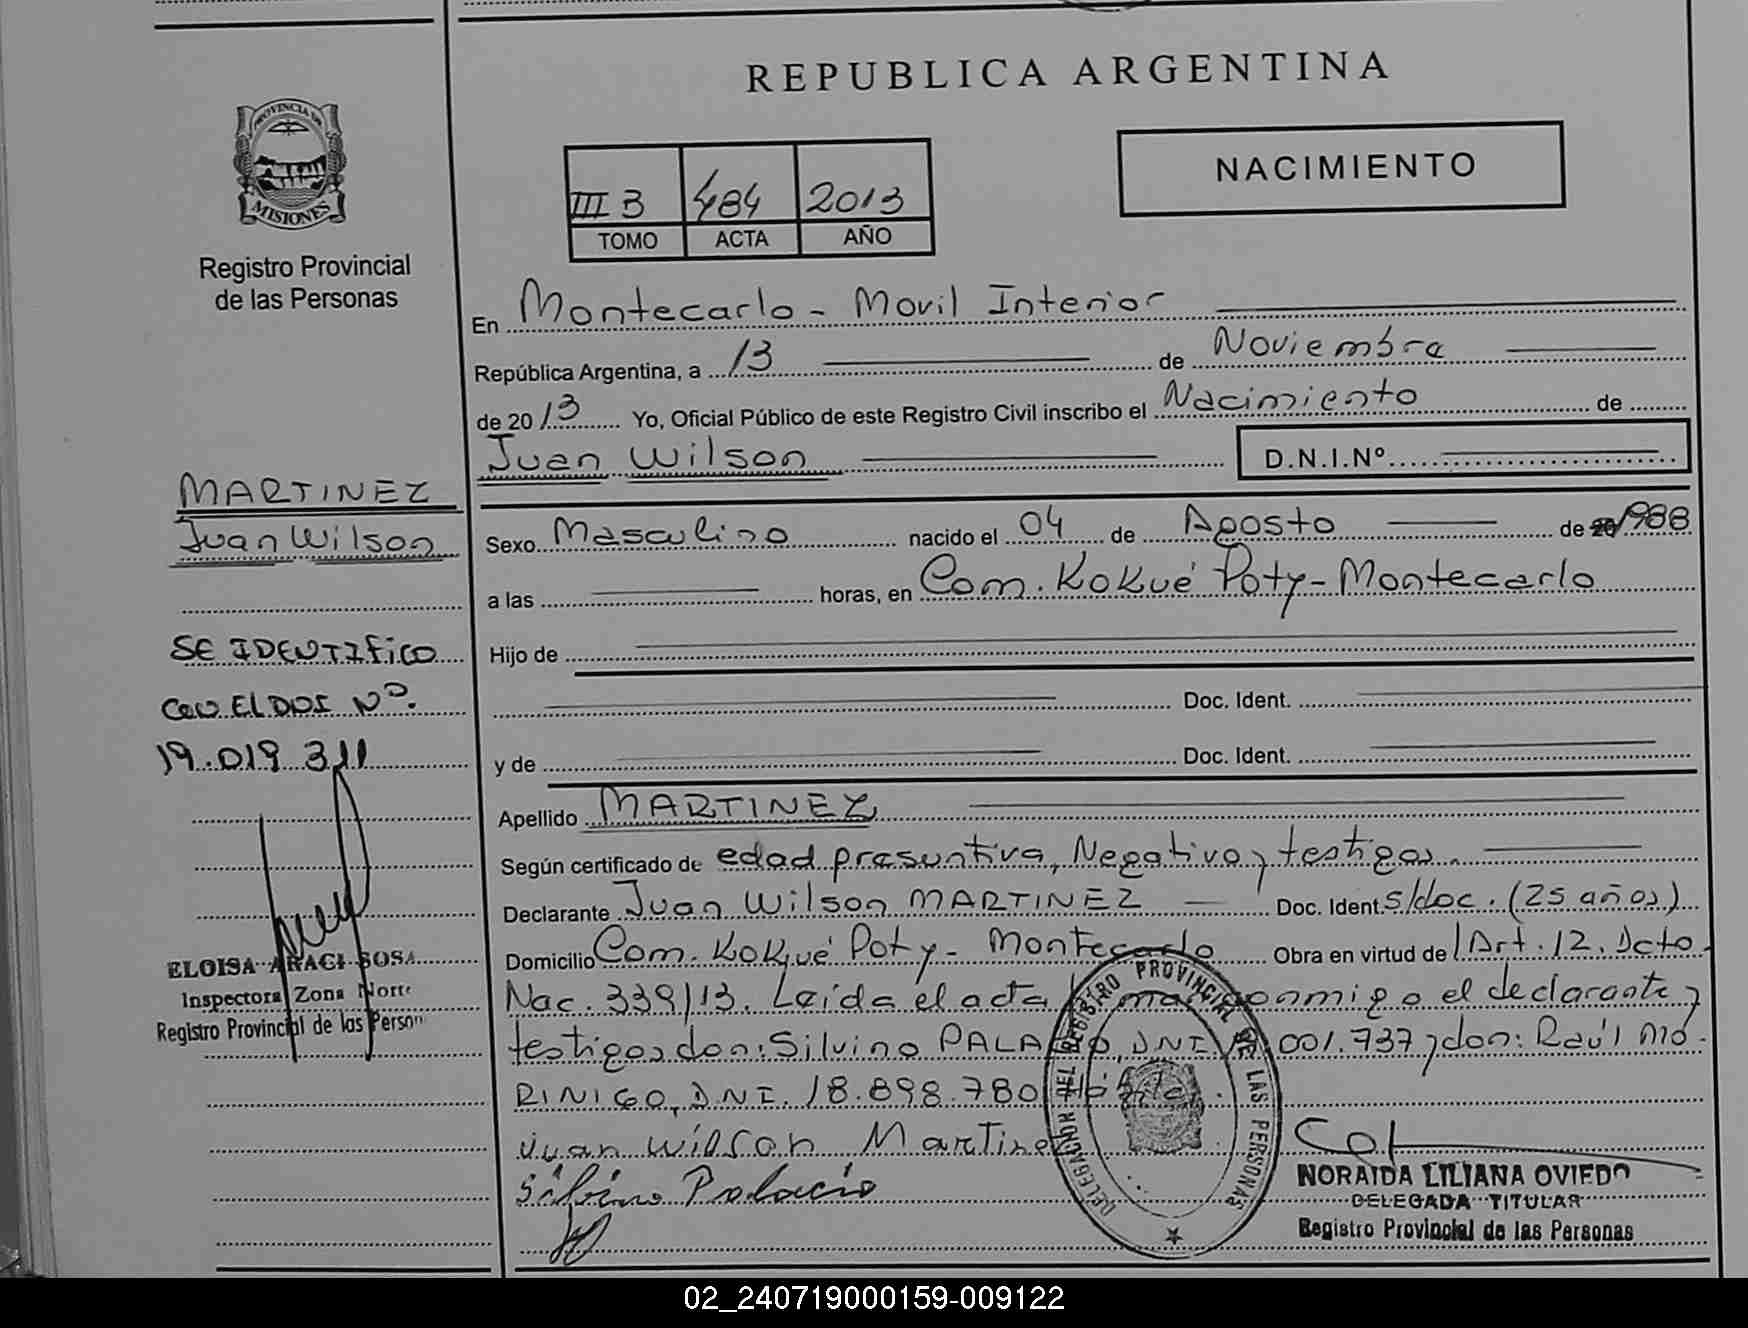 REPUBLICA ARGENTINA
PROVINCIA DE
MISIONES
Registro Provincial
de las Personas
III 3 484 2013
TOMO ACTA AÑO
NACIMIENTO
En Montecarlo - Movil Interior
República Argentina, a 13 de Noviembre
de 20 13 Yo, Oficial Público de este Registro Civil inscribo el Nacimiento de
Juan Wilson D.N.I.Nº
MARTINEZ
Juan Wilson
SE IDENTIFICO
CON EL DNI Nº.
19.019.311
ELOISA ARACI SOSA
Inspectora Zona Norte
Registro Provincial de las Person
Sexo Masculino nacido el 04 de Agosto de 1988
a las horas, en Com. Kokué Poty - Montecarlo
Hijo de
Doc. Ident.
y de Doc. Ident.
Apellido MARTINEZ
Según certificado de edad presuntiva, Negativo y testigos.
Declarante Juan Wilson MARTINEZ Doc. Ident. s/doc. (25 años)
Domicilio Com. Kokué Poty - Montecarlo Obra en virtud de Art. 12. Dcto
Nac. 339/13. Leída el acta conmigo el declarante y
testigos don: Silvino DNI 001.737 y don: Raúl MO-
RINIGO, DNI. 18.898.780
Juan Wilson Martinez
Silvino Palacio
DELEGACION DEL REGISTRO PROVINCIAL DE LAS PERSONAS
NORAIDA LILIANA OVIEDO
DELEGADA TITULAR
Registro Provincial de las Personas
02_240719000159-009122